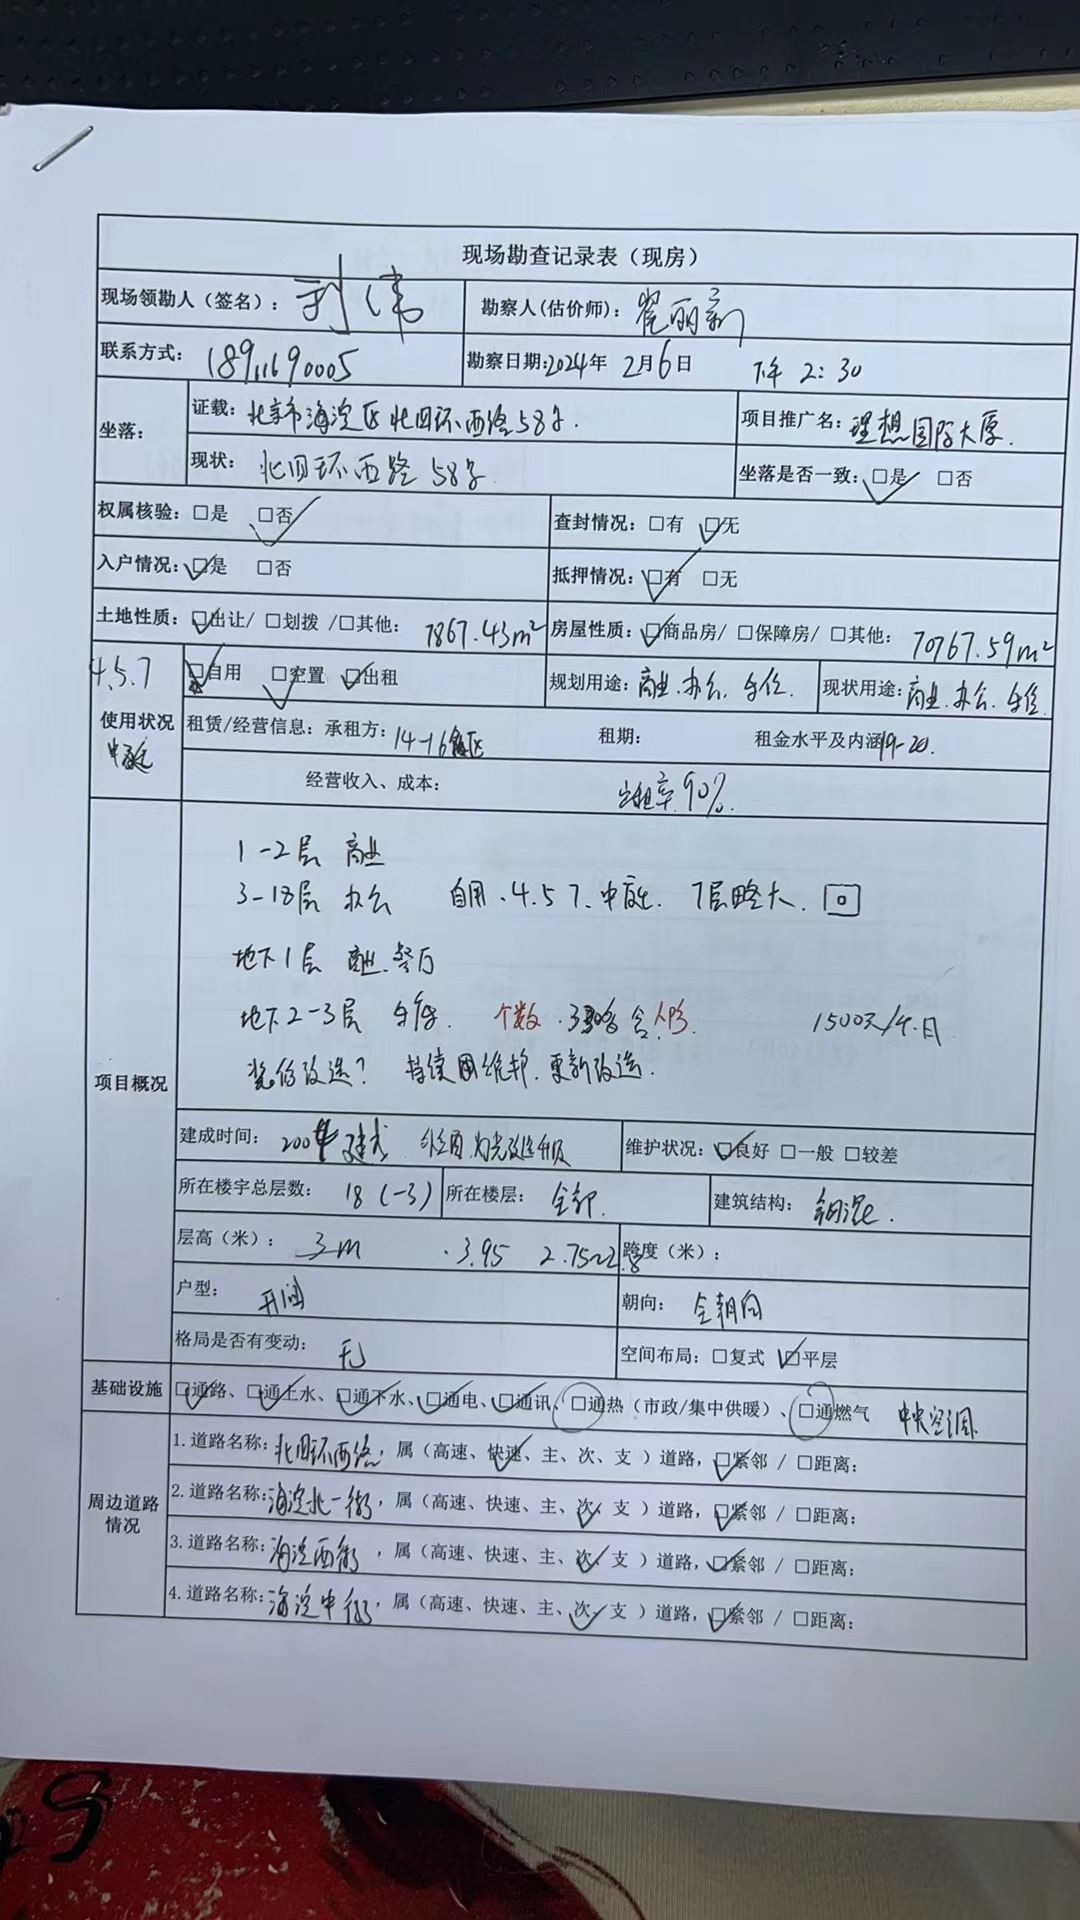 现场勘查记录表（现房）
现场领勘人（签名）：刘伟 勘察人(估价师)：翟丽新
联系方式：18911690005 勘察日期:2024年 2月6日 下午 2:30
坐落：
证载：北京市海淀区北四环西路58号. 项目推广名：理想国际大厦.
现状：北四环西路58号. 坐落是否一致：☑是 □否
权属核验：□是 ☑否 查封情况：□有 ☑无
入户情况：☑是 □否 抵押情况：☑有 □无
土地性质：☑出让/ □划拨 /□其他： 7867.43m² 房屋性质：☑商品房/ □保障房/ □其他： 70767.59m²
4.5.7 ☑自用 ☑空置 ☑出租 规划用途：商业.办公.车位. 现状用途：商业.办公.车位.
使用状况
租赁/经营信息：承租方：14-16 租期： 租金水平及内涵19-20.
经营收入、成本： 出租率90%.
项目概况
1-2层 商业
3-18层 办公 自用.4.5 7.中庭. 7层略大.
地下1层 商业.餐厅
地下2-3层 车库. 个数. 含人防. 1500元/个.月
装修改造? 持续 维护.更新改造.
建成时间： 建成 改造升级 维护状况：☑良好 □一般 □较差
所在楼宇总层数： 18 (-3) 所在楼层： 全部. 建筑结构： 钢混.
层高（米）： 3m .3.95 2.75~2.8 跨度（米）：
户型： 开间 朝向： 全朝向
格局是否有变动： 无 空间布局：□复式 ☑平层
基础设施 ☑通路、☑通上水、☑通下水、☑通电、☑通讯、□通热（市政/集中供暖）、□通燃气 中央空调.
周边道路情况
1.道路名称：北四环西路，属（高速、快速、主、次、支 ）道路，☑紧邻 / □距离：
2.道路名称：海淀北一街，属（高速、快速、主、次、支 ）道路，☑紧邻 / □距离：
3.道路名称：海淀西街，属（高速、快速、主、次、支 ）道路，☑紧邻 / □距离：
4.道路名称：海淀中街，属（高速、快速、主、次、支 ）道路，☑紧邻 / □距离：